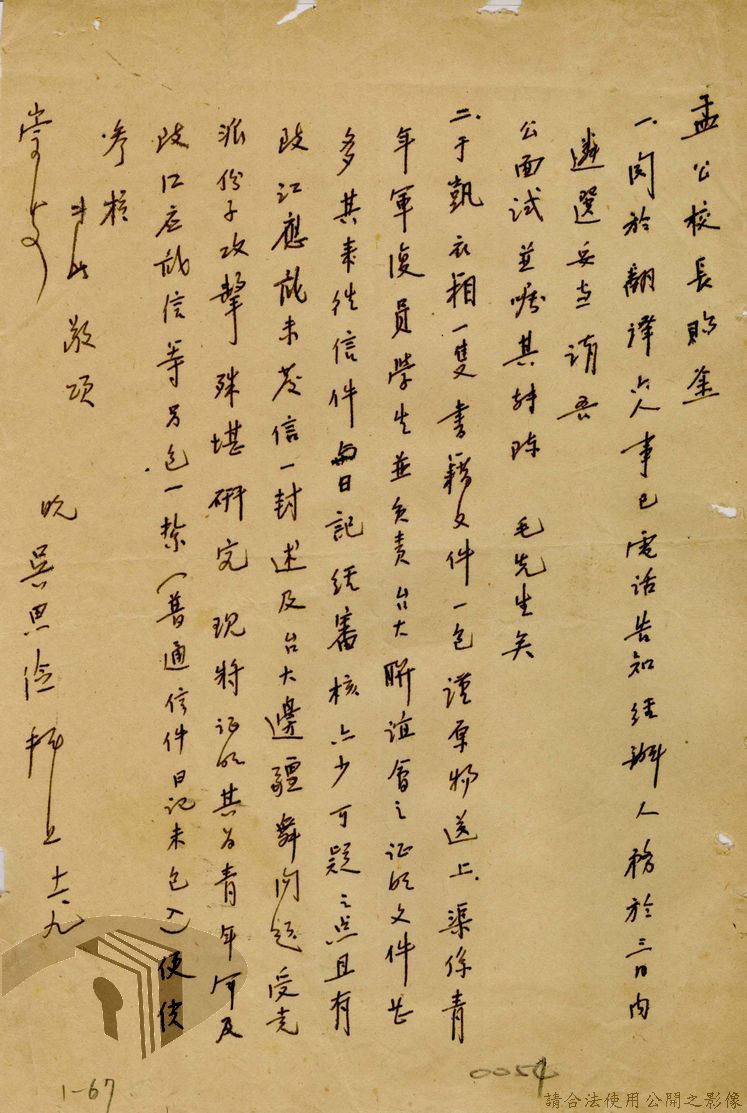 孟公校長賜鑒
一、關於翻譯六人事已電話告知經辦人務於三日內
遴選妥當請吾
公面試並囑其轉陳 毛先生矣
二、于凱衣箱一隻書籍文件一包謹原物送上、渠係青
年軍復員學生並負責台大聯誼會之证明文件甚
多其來往信件與日記經審核亦少可疑之点且有
致江應龍未發信一封述及台大邊疆舞問題受走
派份子攻擊殊堪研究現將证明其为青年軍及
致江应龍信等另包一紮(普通信件日記未包入)便供
參核
敬頌
崇安
晚 吳思 拜上 十六、九
0054
1-67
請合法使用公開之影像